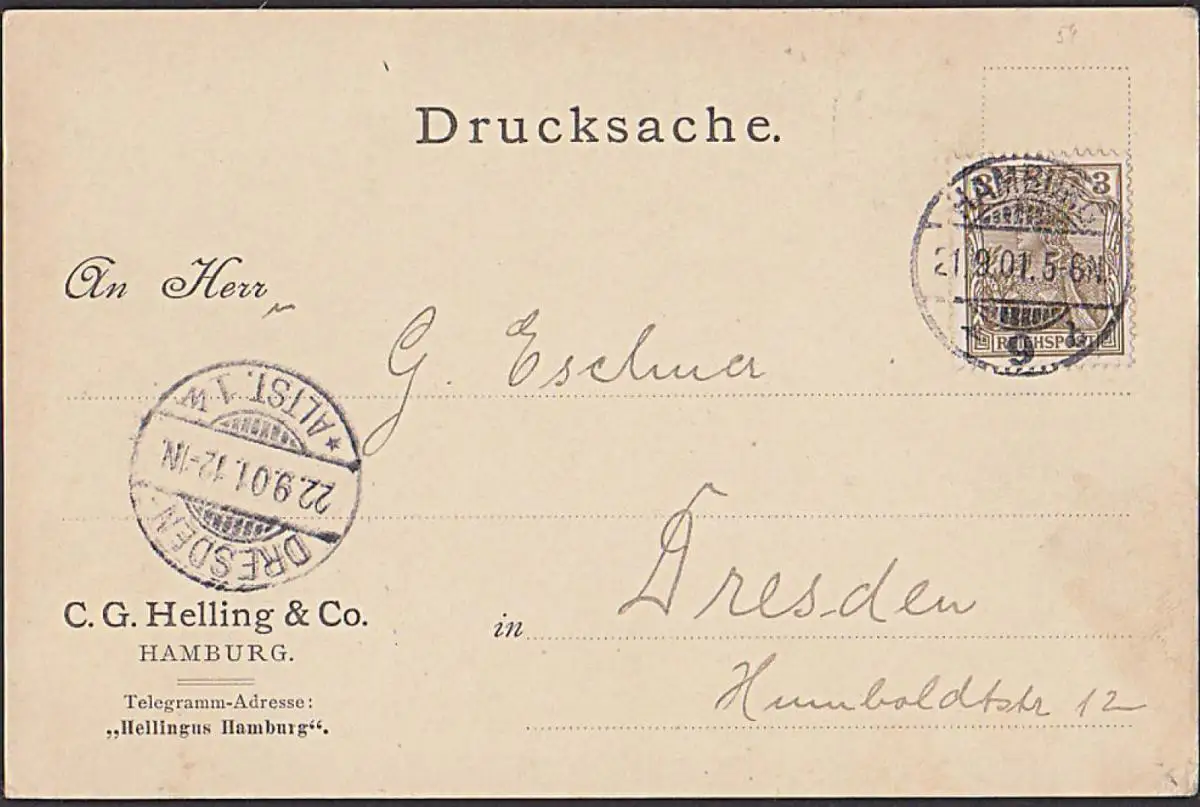 54
Drucksache.
3 3
HAMBURG
21.9.01.5-6N.
* 9 b
REICHSPOST
An Herrn
G. Eschner
*ALTST. 1 W
22.9.01.12-1N.
DRESDEN-
C. G. Helling & Co.
HAMBURG.
in Dresden
Telegramm-Adresse:
„Hellingus Hamburg“.
Humboldtstr 12